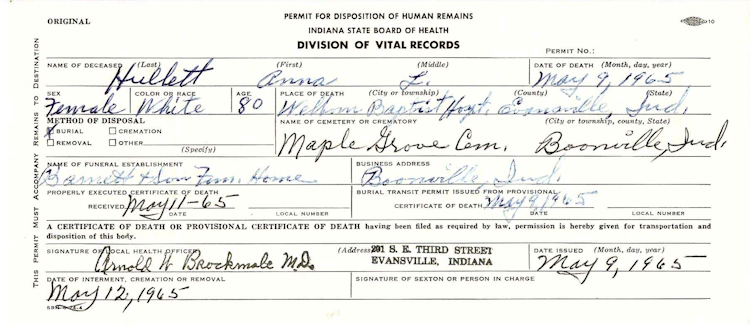 ORIGINAL
PERMIT FOR DISPOSITION OF HUMAN REMAINS
INDIANA STATE BOARD OF HEALTH
DIVISION OF VITAL RECORDS
10
PERMIT NO.:
NAME OF DECEASED (Last) (First) (Middle) DATE OF DEATH (Month, day, year)
Hullett Anna L. May 9, 1965
SEX COLOR OR RACE AGE PLACE OF DEATH (City or township) (County) (State)
Female White 80 Welborn Baptist Hospt. Evansville, Ind.
METHOD OF DISPOSAL NAME OF CEMETERY OR CREMATORY (City or township, county, State)
BURIAL CREMATION
REMOVAL OTHER
(Specify)
Maple Grove Cem. Boonville, Ind.
NAME OF FUNERAL ESTABLISHMENT BUSINESS ADDRESS
Barnett & Son Fun. Home Boonville Ind.
PROPERLY EXECUTED CERTIFICATE OF DEATH BURIAL TRANSIT PERMIT ISSUED FROM PROVISIONAL
RECEIVED May 11-65 CERTIFICATE OF DEATH May 9, 1965
DATE LOCAL NUMBER DATE LOCAL NUMBER
A CERTIFICATE OF DEATH OR PROVISIONAL CERTIFICATE OF DEATH having been filed as required by law, permission is hereby given for transportation and
disposition of this body.
SIGNATURE OF LOCAL HEALTH OFFICER (Address) 201 S. E. THIRD STREET DATE ISSUED (Month, day, year)
EVANSVILLE, INDIANA
Arnold W Brockmole M.D. May 9, 1965
DATE OF INTERMENT, CREMATION OR REMOVAL SIGNATURE OF SEXTON OR PERSON IN CHARGE
May 12, 1965
THIS PERMIT MUST ACCOMPANY REMAINS TO DESTINATION